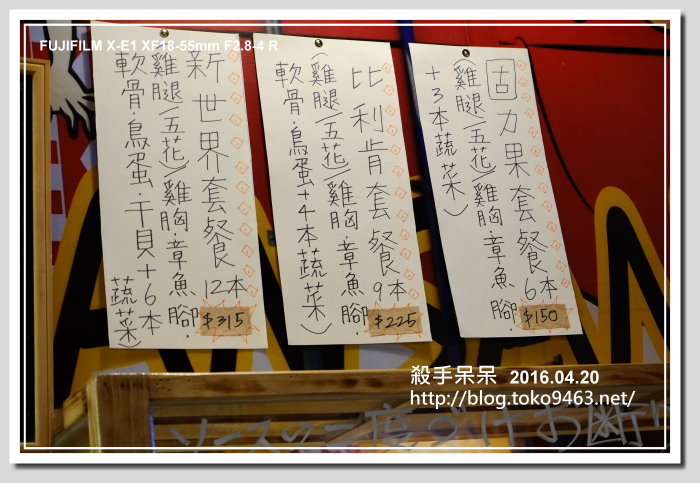 FUJIFILM X-E1 XF18-55mm F2.8-4 R
新世界套餐12本
(雞腿/五花)雞胸·章魚腳·
軟骨·鳥蛋·干貝+6本
蔬菜)
$315
比利肯套餐9本
(雞腿/五花)雞胸·章魚腳·
軟骨·鳥蛋+4本蔬菜)
$225
固力果套餐6本
(雞腿/五花)雞胸·章魚腳·
+3本蔬菜)
$150
殺手呆呆 2016.04.20
http://blog.toko9463.net/
ソースの二度づけお断り